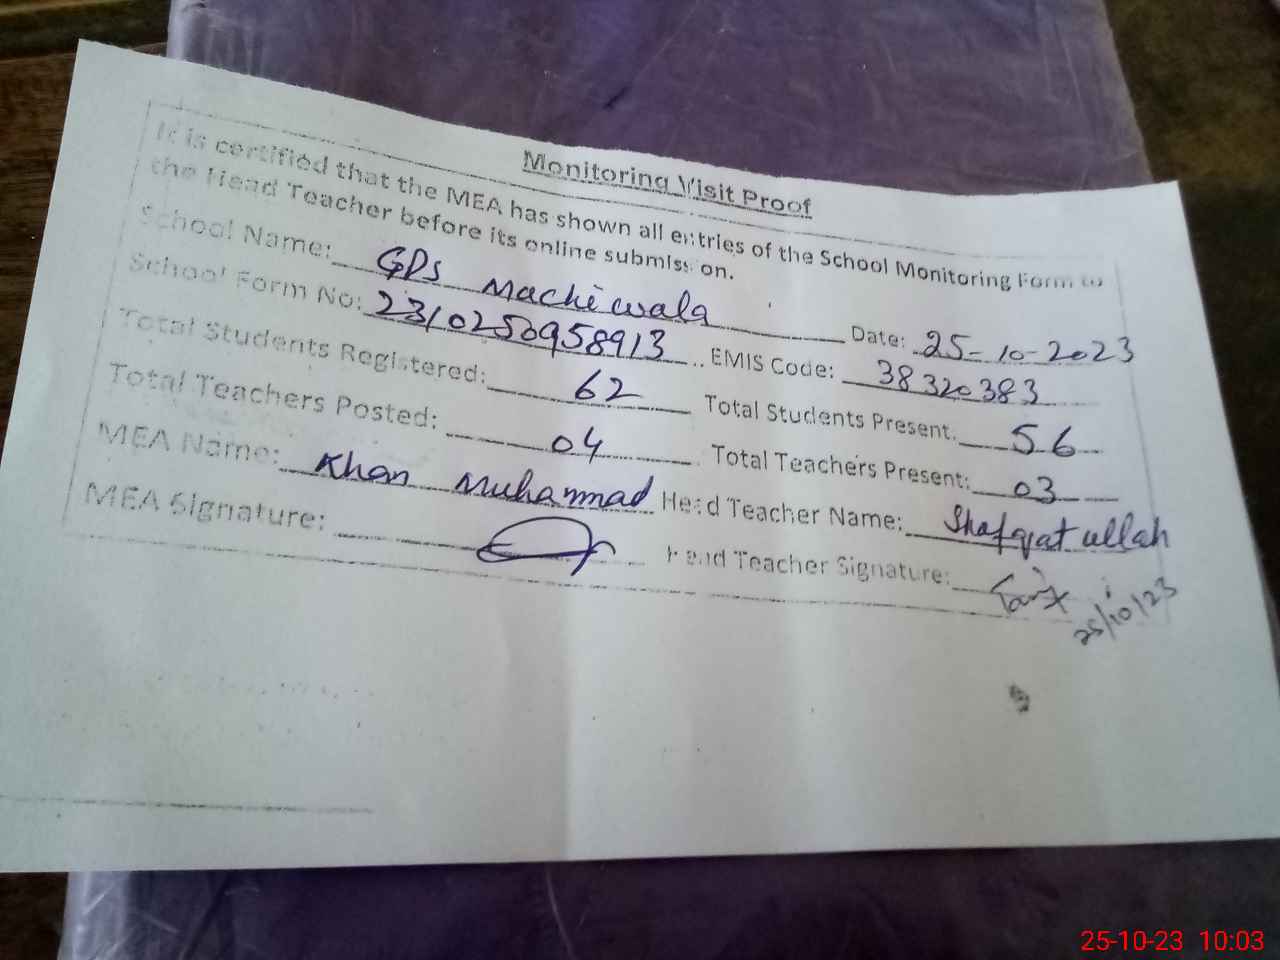 Monitoring Visit Proof
It is certified that the MEA has shown all entries of the School Monitoring Form to
the Head Teacher before its online submission.
School Name: GPS Machiwala Date: 25-10-2023
School Form No: 2310250958913 EMIS Code: 38320383
Total Students Registered: 62 Total Students Present: 56
Total Teachers Posted: 04 Total Teachers Present: 03
MEA Name: Khan Muhammad Head Teacher Name: Shafqat ullah
MEA Signature: Head Teacher Signature:
25/10/23
25-10-23 10:03